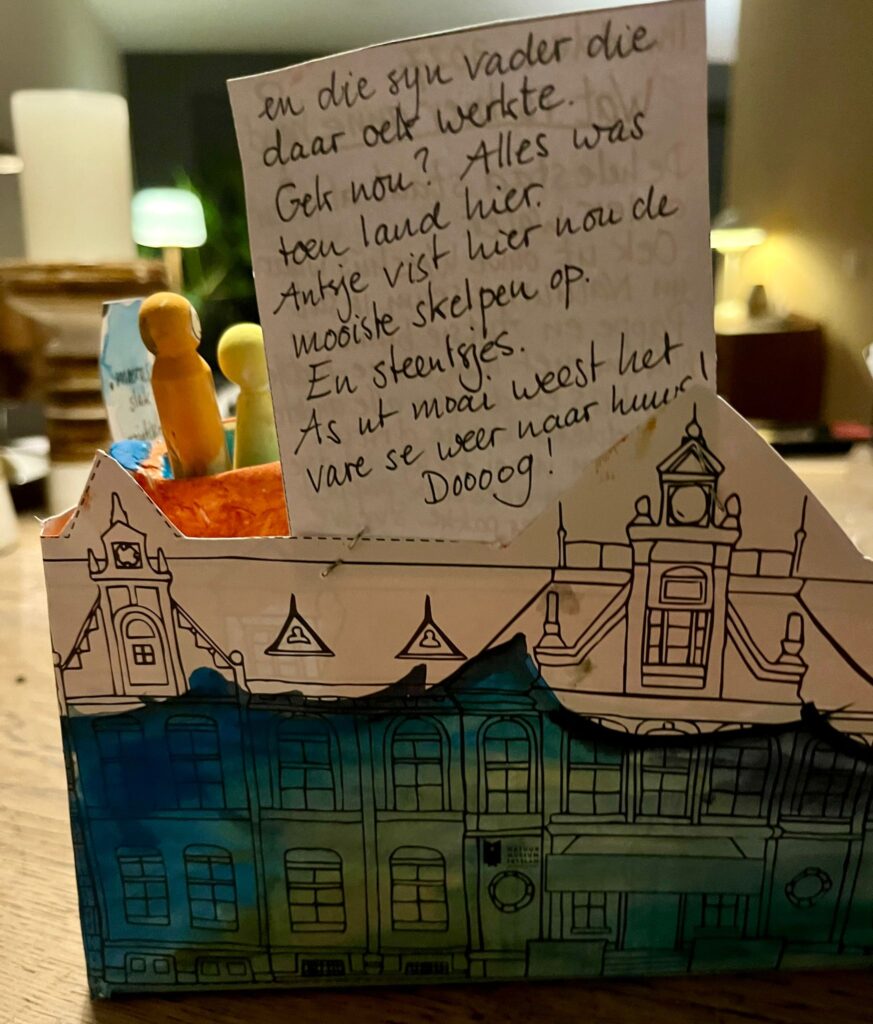 en die syn vader die
daar oek werkte.
Gek nou? Alles was
toen land hier.
Antsje vist hier nou de
mooiste skelpen op.
En steentsjes.
As ut moai weest het
vare se weer naar huus!
Doooog!
NATUUR
MUSEUM
FRYSLAN